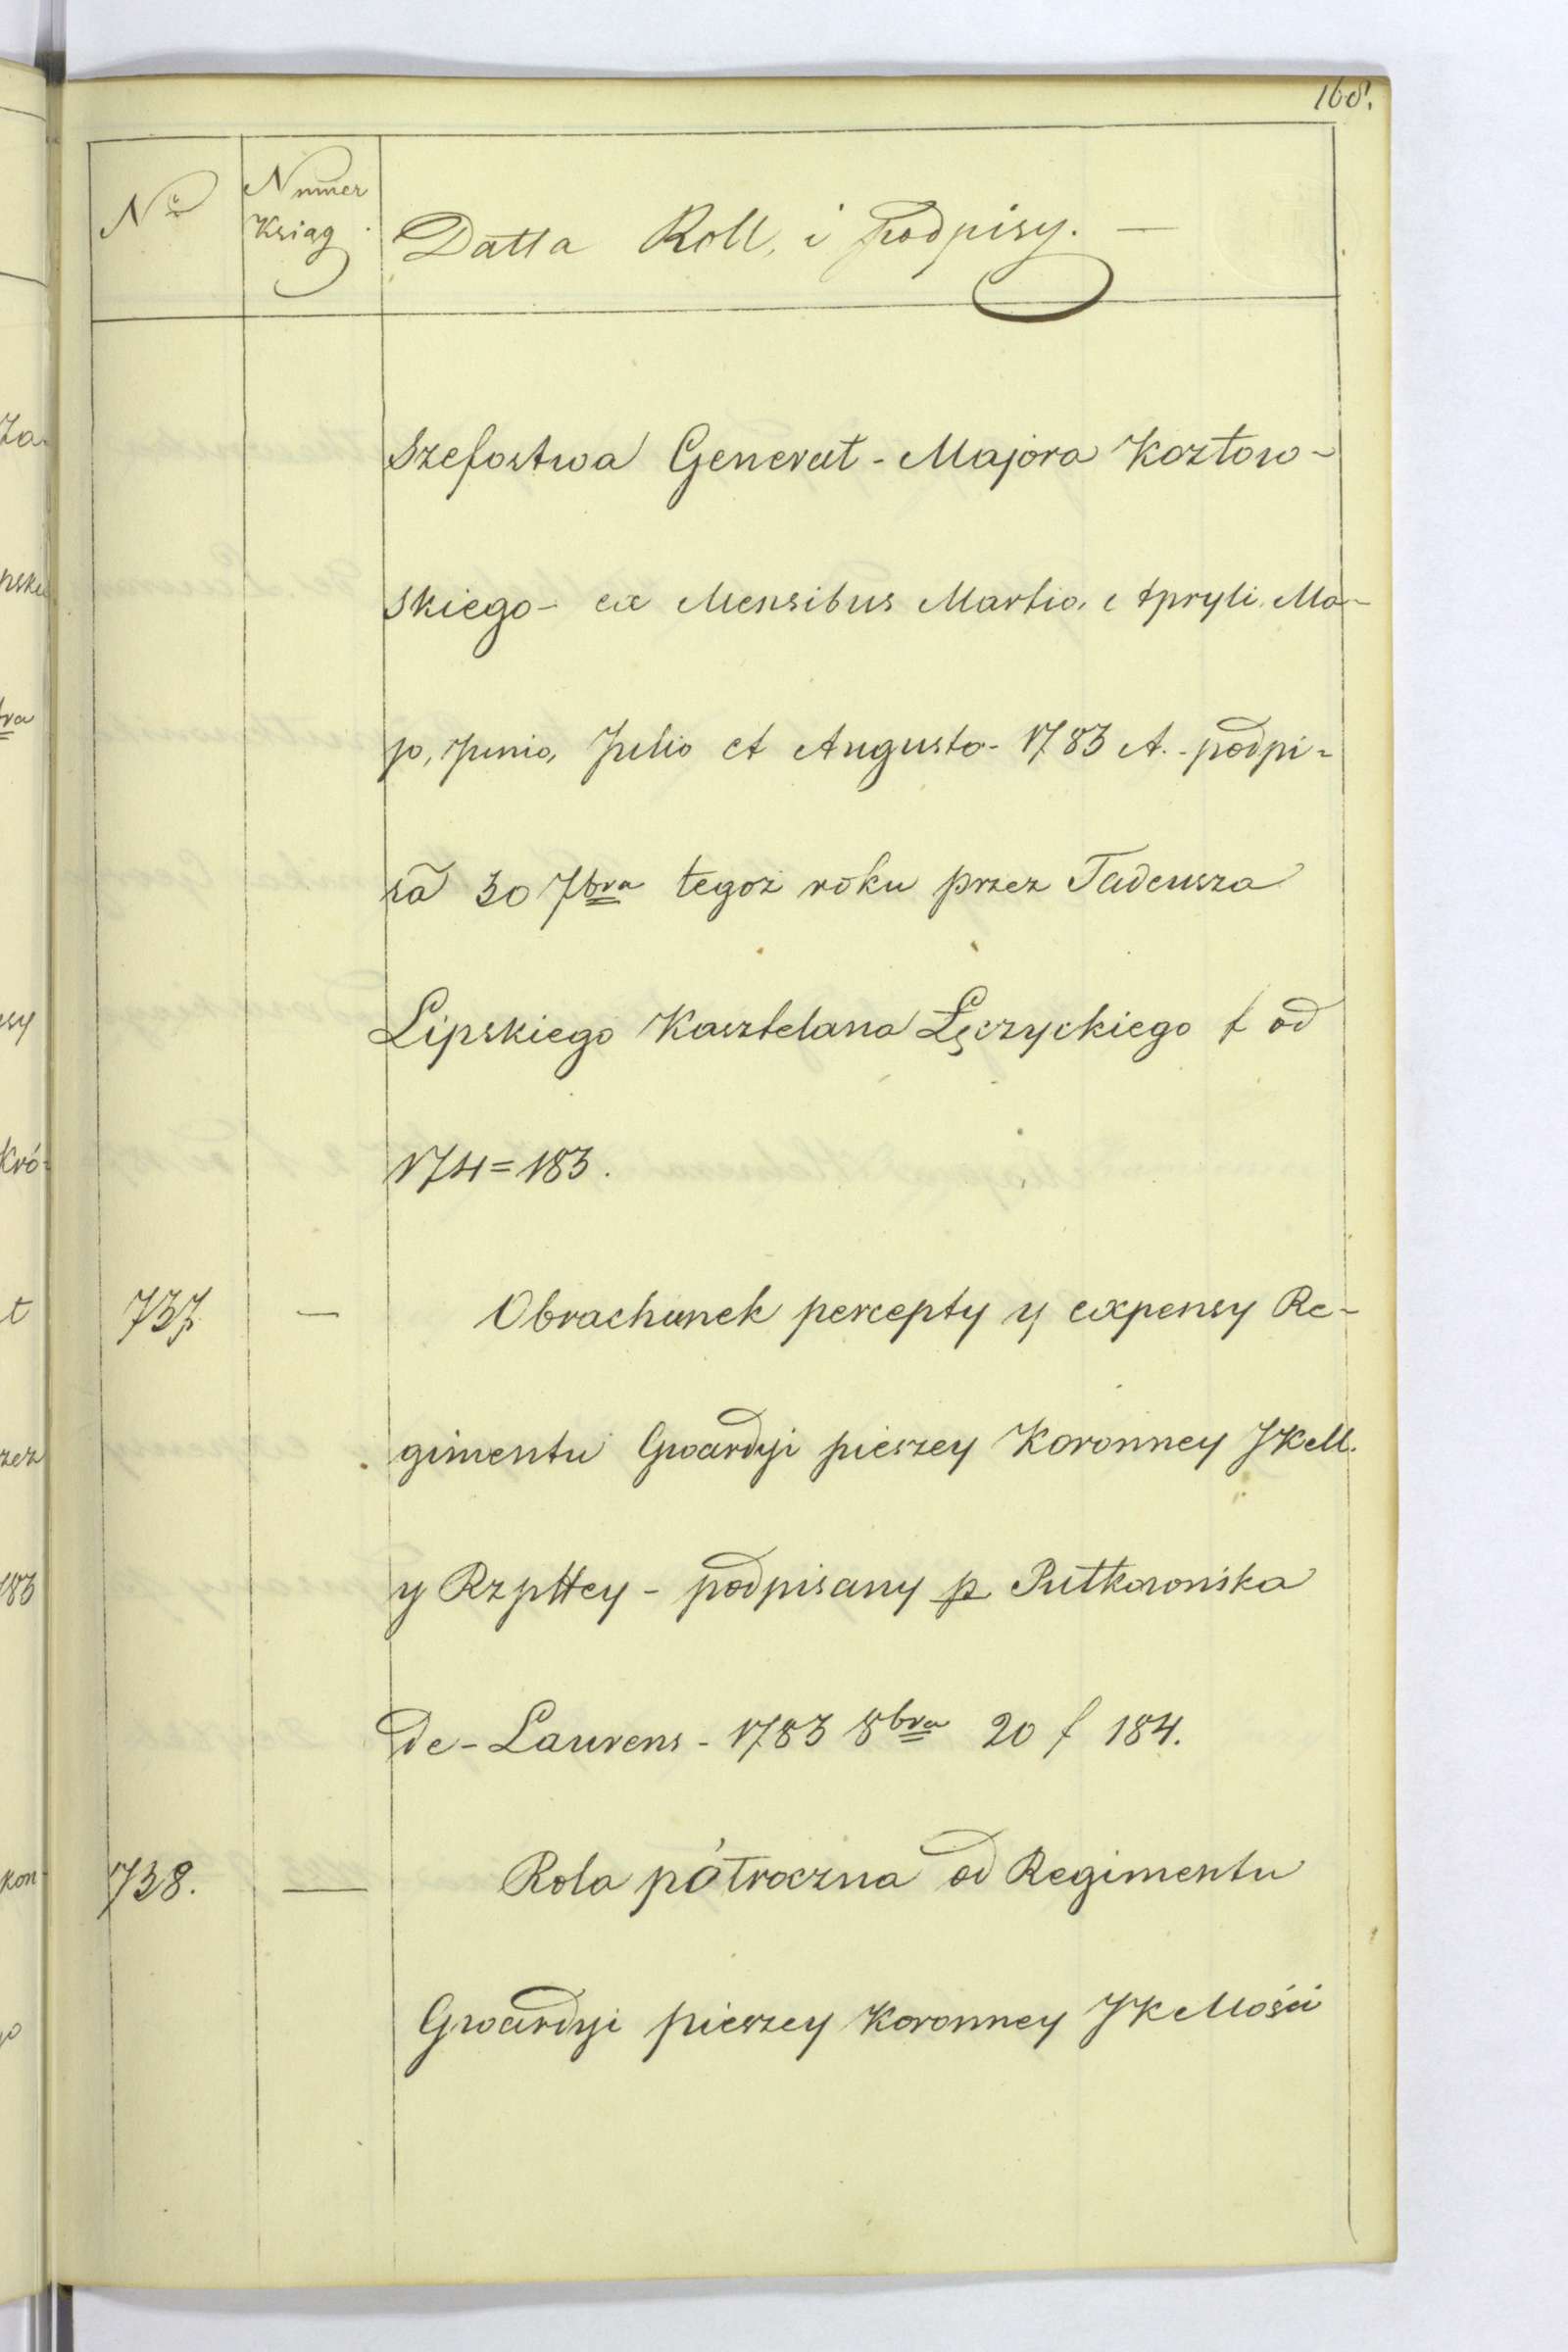 168.
No
Numer
Ksiąg
Datta Roll, i podpisy. —
Szefostwa Generał - Majora Kozłow-
skiego - ex Mensibus Martio, Apryli, Ma-
jo, Junio, Julio et Augusto - 1783 A. - podpi=
sa 30 7bra tegoż roku przez Tadeusza
Lipskiego Kasztelana Łęczyckiego f od
174=183.
737. — Obrachunek percepty y expensy Re-
gimentu Gwardyi pieszey Koronney JKM.
y Rzpttey - podpisany p Pułkownika
de - Laurens - 1783 8bra 20 f 184.
738. — Rola półroczna od Regimentu
Gwardyi pieszey Koronney JKMości